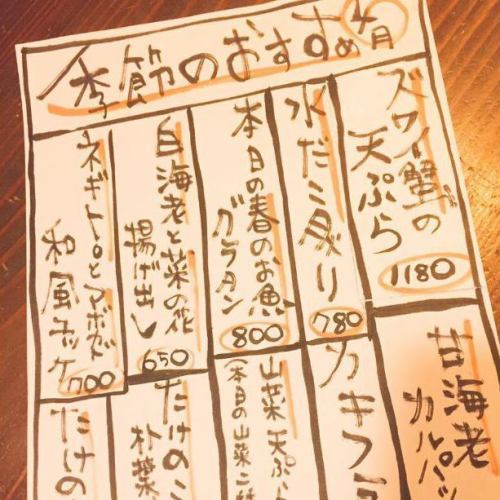 季節のおすすめ
4月
ズワイ蟹の
天ぷら
1180
水だこ造り
780
本日の春のお魚
グラタン
800
白海老と菜の花
揚げ出し
650
ネギトロとアボカド
和風ユッケ
700
甘海老
カルパッ
カキフラ
山菜天ぷら
(本日の山菜二種
たけのこ
朴葉
たけの